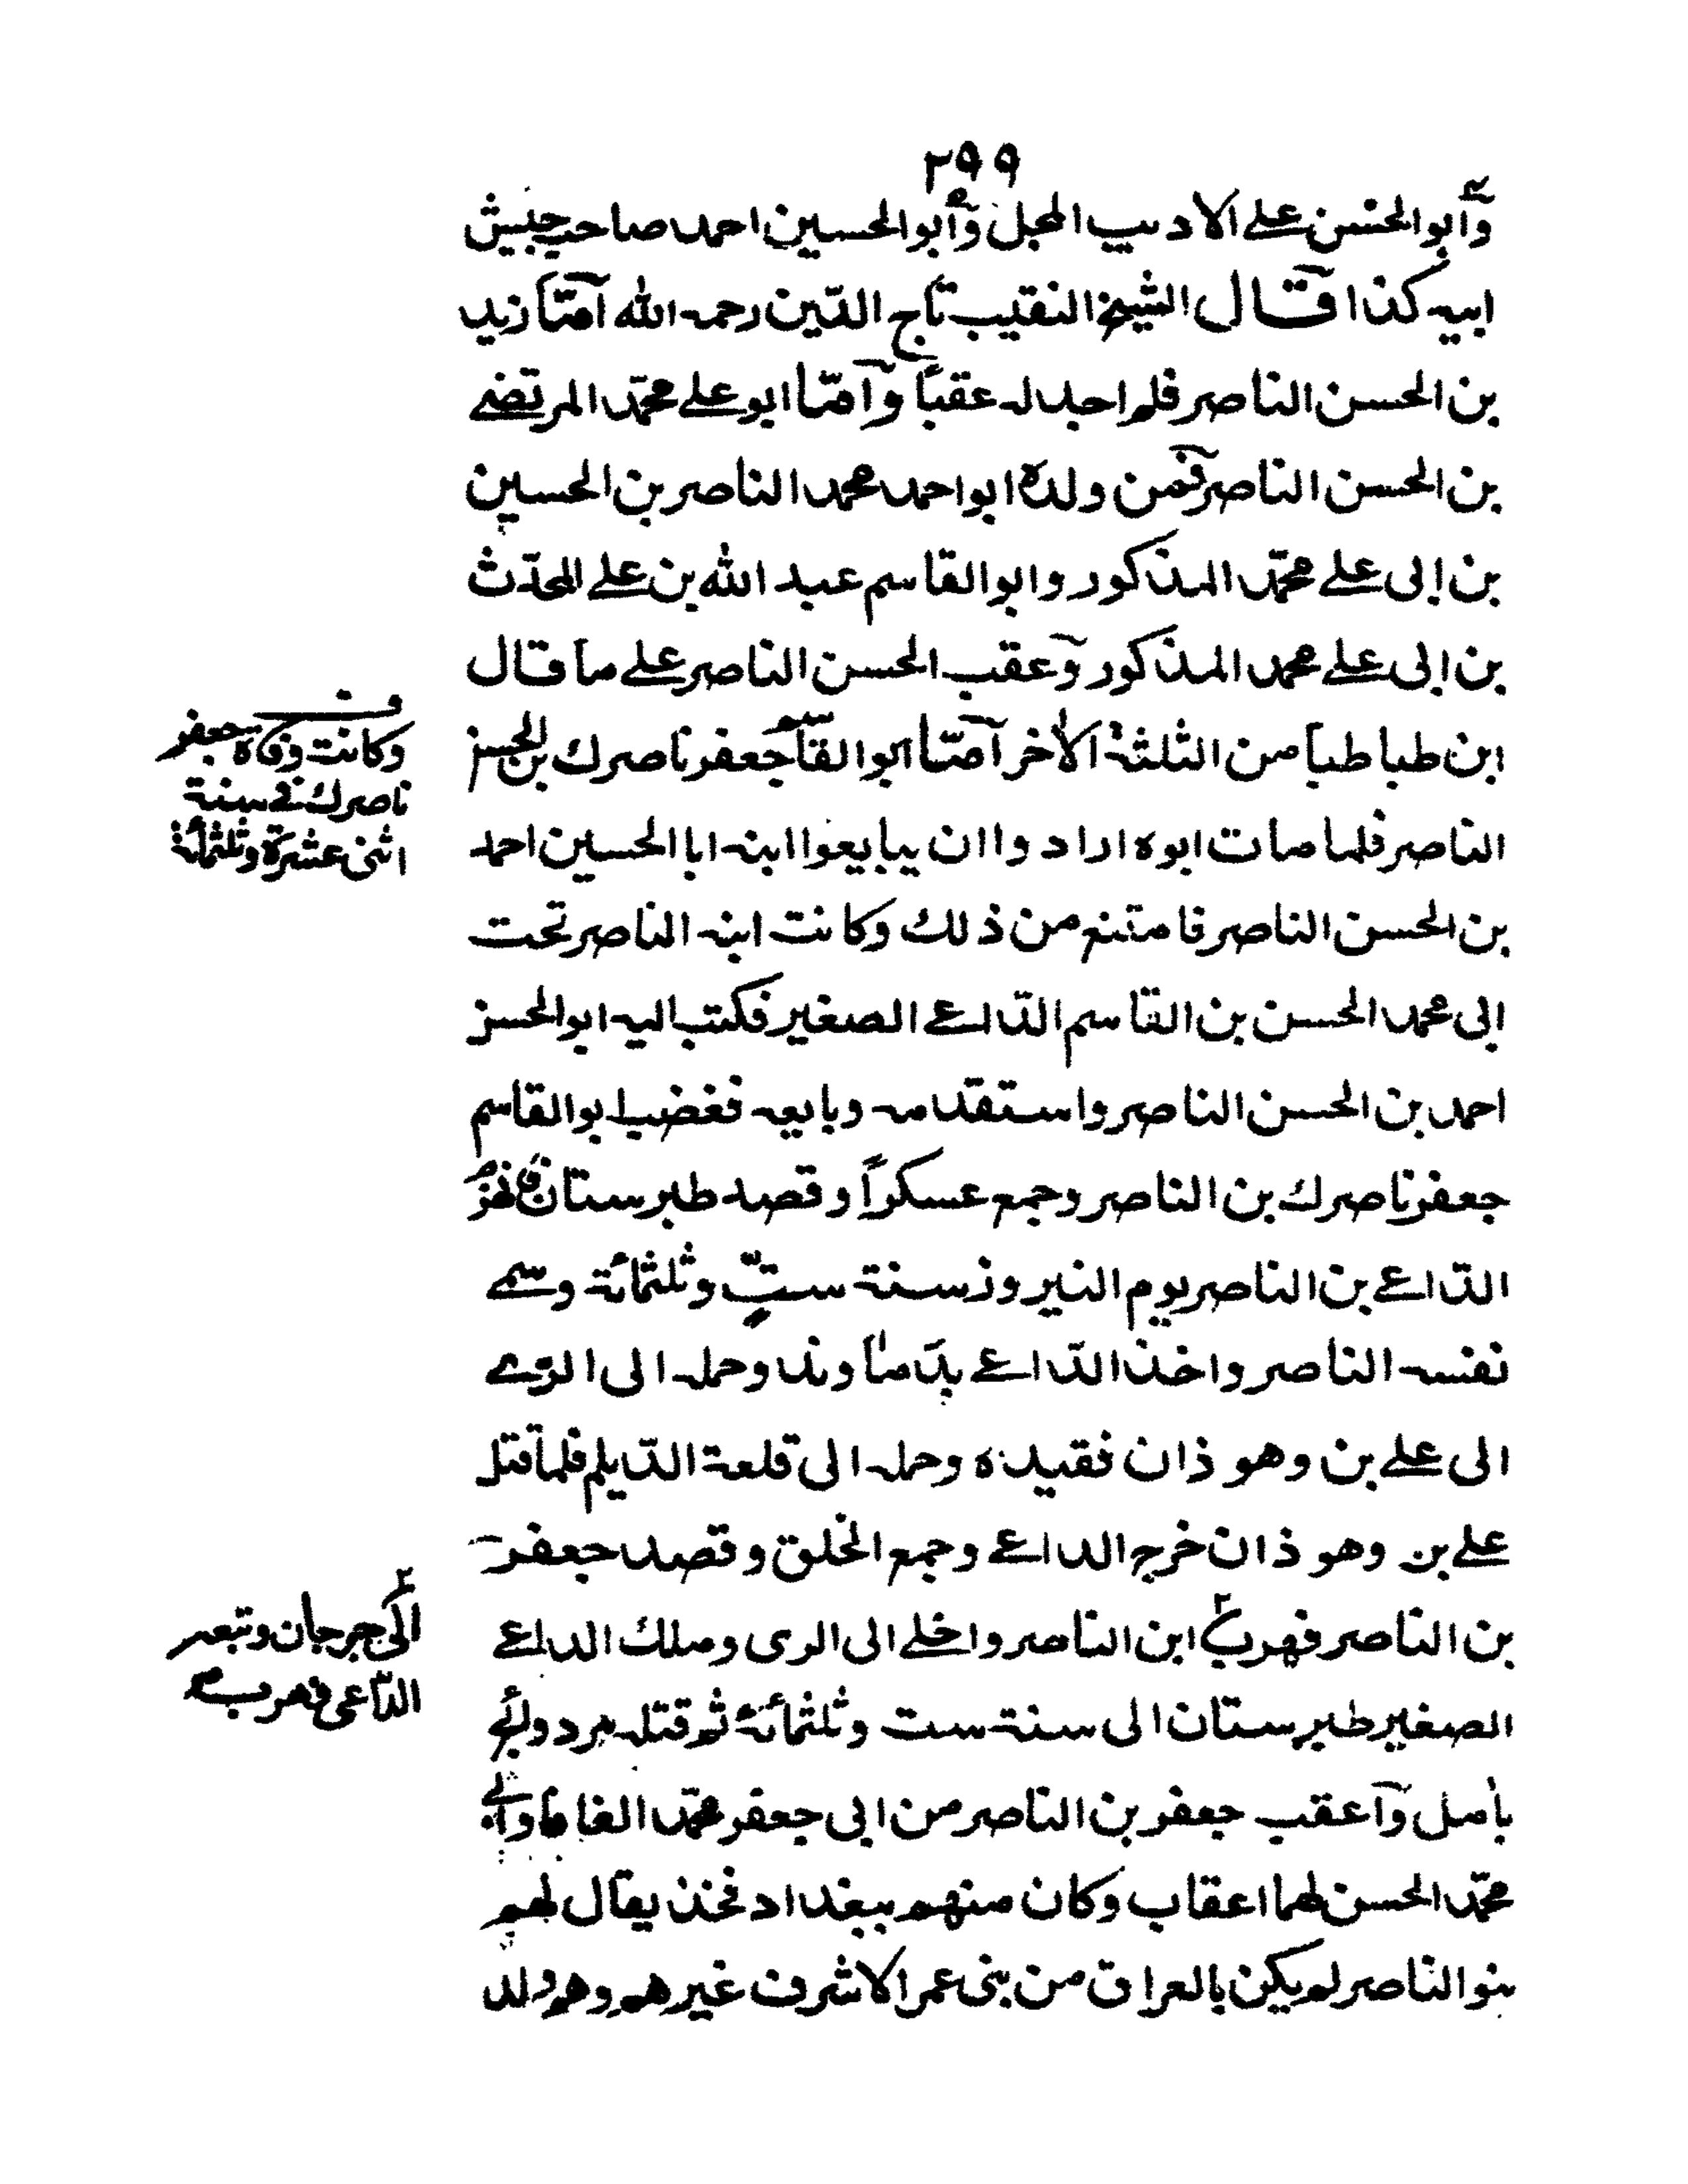 ٢٩٩
وأبو الحسن علے الاديب المجل وأبو الحسين احمد صاحب جيش
ابيه كذا قال الشيخ النقيب تاج الدّين رحمه الله آمّا زيد
بن الحسن الناصر فلم اجد له عقبًا وآمّا ابو علے محمّد المرتضے
بن الحسن الناصر فمن ولده ابو احمد محمد الناصر بن الحسين
بن ابى علے محمّد المذكور وابو القاسم عبد الله بن علے المحدّث
بن ابى علے محمد المذكور وعقب الحسن الناصر علے ما قال
ابن طباطبا من الثلثة الاخر آمّا ابو القاسم جعفر ناصرك بن الحسن
الناصر فلما مات ابوه ارادوا ان يبايعوا ابنه ابا الحسين احمد
بن الحسن الناصر فامتنع من ذلك وكانت ابنه الناصر تحت
ابى محمد الحسن بن القاسم الدّاعے الصغير فكتب اليه ابو الحسن
احمد بن الحسن الناصر واستقدمه وبايعه فغضب ابو القاسم
جعفر ناصرك بن الناصر وجمع عسكراً وقصد طبرستان فانهزم
الدّاعے بن الناصر يوم النيروز سنة ستٍّ وثلثمائة وسمے
نفسه الناصر واخذ الدّاعے بدماوند وحمله الى الرّے
الى علے بن وهوذان فقيده وحمله الى قلعة الدّيلم فلما قتل
علے بن وهوذان خرج الداعے وجمع الخلق وقصد جعفر
بن الناصر فهرب ابن الناصر واخلے الى الرى وملك الداعے
الصغير طبرستان الى سنة ست وثلثمائة ثم قتله مرداويج
بآمل وآعقب جعفر بن الناصر من ابى جعفر محمّد الغافا وابى
محمّد الحسن لهما اعقاب وكان منهم ببغداد فخذ يقال لهم
بنو الناصر لم يكن بالعراق من بنى عمر الاشرف غيرهم وهم ولد
وكانت وفاة جعفر
ناصرك فے سنة
اثنى عشرة وثلثمائة
الى جرجان وتبعه
الدّاعى فهرب